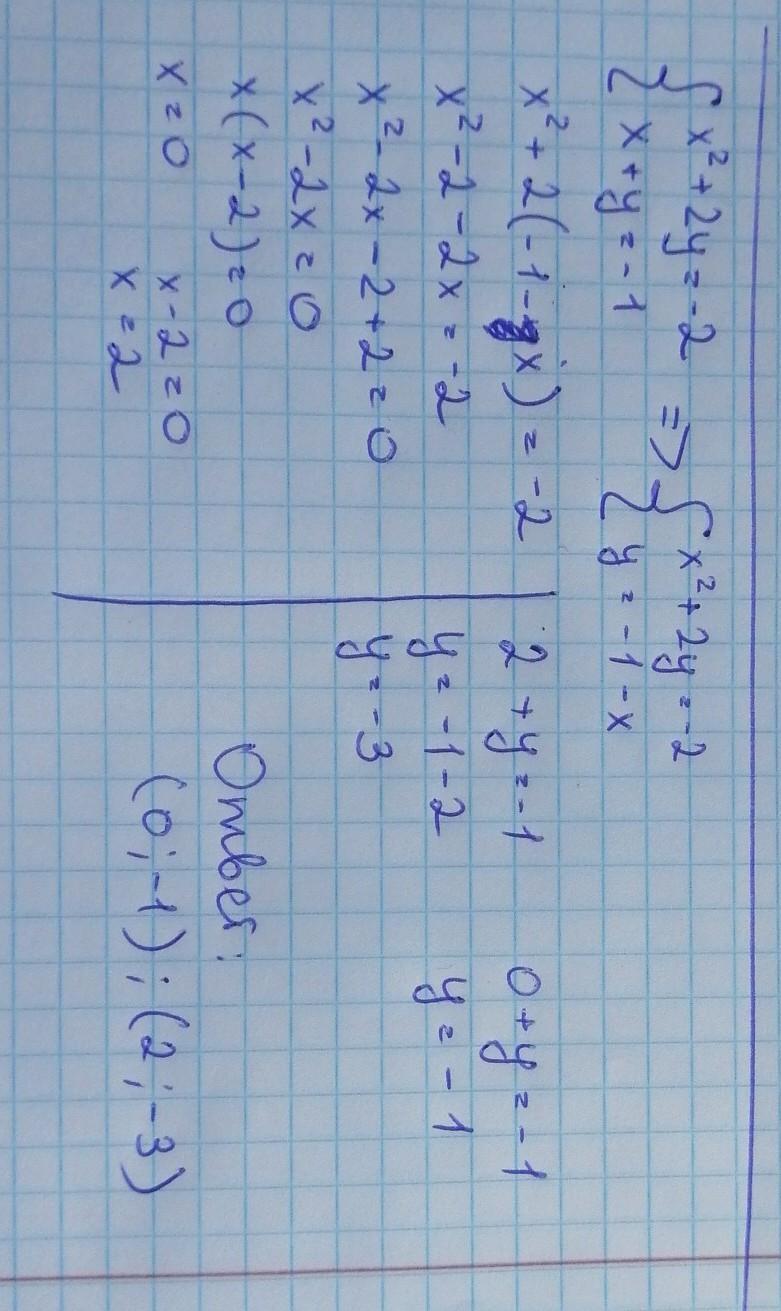 { x² + 2y = -2 => { x² + 2y = -2
{ x + y = -1 { y = -1 - x
x² + 2(-1 - x) = -2
x² - 2 - 2x = -2
x² - 2x - 2 + 2 = 0
x² - 2x = 0
x(x - 2) = 0
x = 0 x - 2 = 0
x = 2
2 + y = -1 0 + y = -1
y = -1 - 2 y = -1
y = -3
Ответ:
(0; -1); (2; -3)